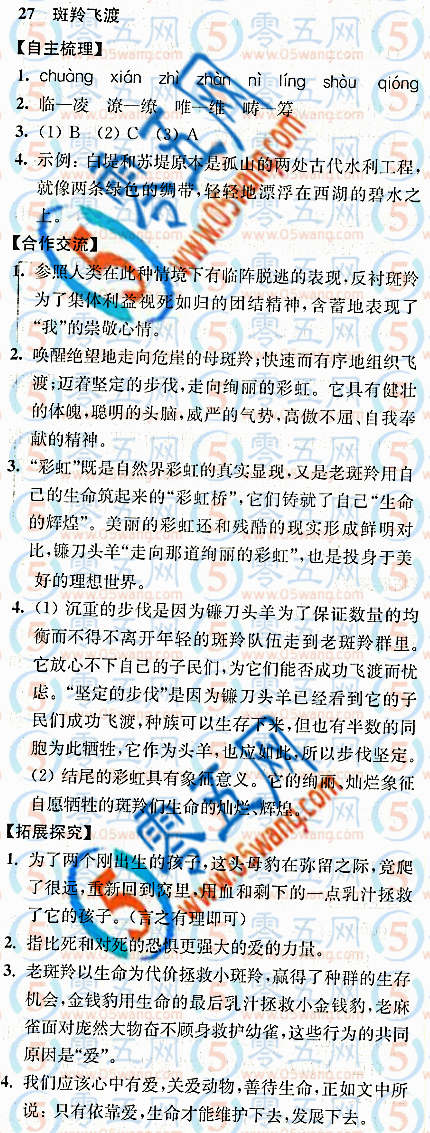 27 斑羚飞渡
【自主梳理】
1. chuàng xián zhì zhàn nì líng shòu qióng
2. 临—凌 潦—缭 唯—维 畴—筹
3. (1) B (2) C (3) A
4. 示例：白堤和苏堤原本是孤山的两处古代水利工程，
就像两条绿色的绸带，轻轻地漂浮在西湖的碧水之
上。
【合作交流】
1. 参照人类在此种情境下有临阵脱逃的表现，反衬斑羚
为了集体利益视死如归的团结精神，含蓄地表现了
“我”的崇敬心情。
2. 唤醒绝望地走向危崖的母斑羚；快速而有序地组织飞
渡；迈着坚定的步伐，走向绚丽的彩虹。它具有健壮
的体魄，聪明的头脑，威严的气势，高傲不屈、自我奉
献的精神。
3. “彩虹”既是自然界彩虹的真实显现，又是老斑羚用自
己的生命筑起来的“彩虹桥”，它们铸就了自己“生命
的辉煌”。美丽的彩虹还和残酷的现实形成鲜明对
比，镰刀头羊“走向那道绚丽的彩虹”，也是投身于美
好的理想世界。
4. (1) 沉重的步伐是因为镰刀头羊为了保证数量的均
衡而不得不离开年轻的斑羚队伍走到老斑羚群里。
它放心不下自己的子民们，为它们能否成功飞渡而忧
虑。“坚定的步伐”是因为镰刀头羊已经看到它的子
民们成功飞渡，种族可以生存下来，但也有半数的同
胞为此牺牲，它作为头羊，也应如此，所以步伐坚定。
(2) 结尾的彩虹具有象征意义。它的绚丽、灿烂象征
自愿牺牲的斑羚们生命的灿烂、辉煌。
【拓展探究】
1. 为了两个刚出生的孩子，这头母豹在弥留之际，竟爬
了很远，重新回到窝里，用血和剩下的一点乳汁拯救
了它的孩子。（言之有理即可）
2. 指比死和对死的恐惧更强大的爱的力量。
3. 老斑羚以生命为代价拯救小斑羚，赢得了种群的生存
机会，金钱豹用生命的最后乳汁拯救小金钱豹，老麻
雀面对庞然大物奋不顾身救护幼雀，这些行为的共同
原因是“爱”。
4. 我们应该心中有爱，关爱动物，善待生命，正如文中所
说：只有依靠爱，生命才能维护下去，发展下去。
零五网
www.05wang.com
零五网
www.05wang.com